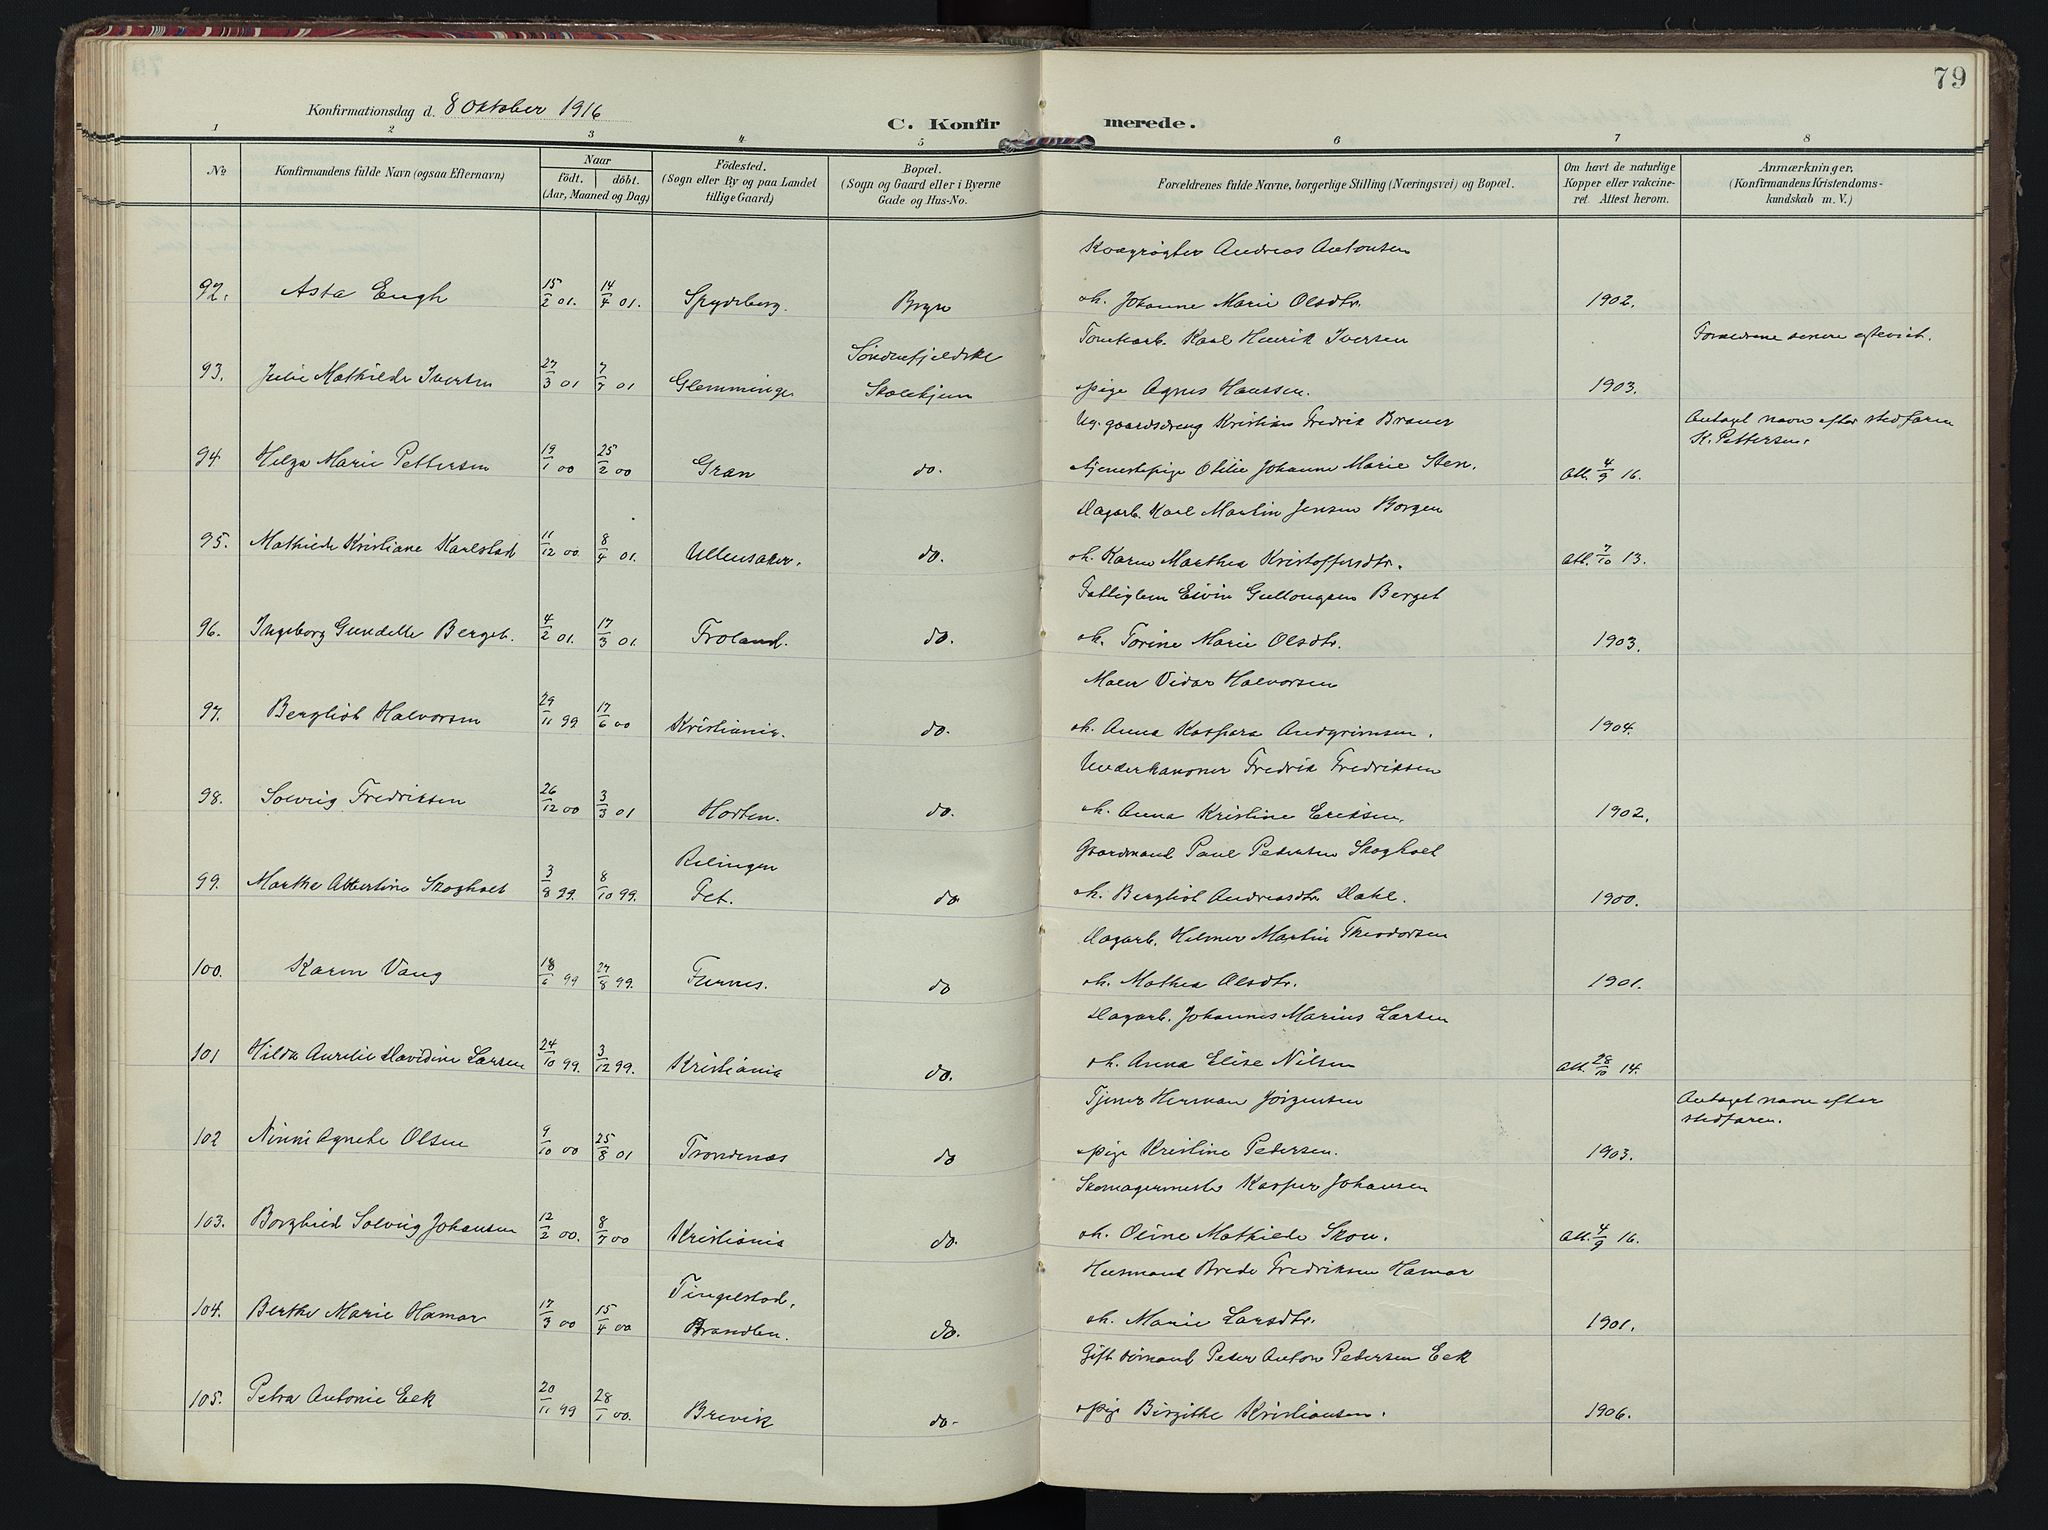 79
Konfirmationsdag d. 8 Oktober 1916
C. Konfirmerede.
1 2 3 4 5 6 7 8
No.
Konfirmandens fulde Navn (ogsaa Efternavn)
Naar
født. døbt.
(Aar, Maaned og Dag)
Födested.
(Sogn eller By og paa Landet
tillige Gaard)
Bopæl.
(Sogn og Gaard eller i Byerne
Gade og Hus-No.
Forældrenes fulde Navne, borgerlige Stilling (Næringsvei) og Bopæl.
Om havt de naturlige
Kopper eller vakcine-
ret. Attest herom.
Anmærkninger,
(Konfirmandens Kristendoms-
kundskab m. V.)
Kvægrøgter Andreas Antonsen
92. Asta Engh 15/2 01. 14/4 01. Spydeberg. Bryn oh. Johanne Marie Olsdtr. 1902.
Tomtearb. Karl Henrik Iversen
Forældrene senere egteviet.
Søndenfjeldske
93. Julie Mathilde Iversen 27/3 01 7/7 01 Glemminge Skolehjem pige Agnes Hanssen. 1903.
Ug. gaardsdreng Kristian Fredrik Braner
Antaget navn efter stedfaren
K. Pettersen.
94. Helga Marie Pettersen 19/1 00 25/2 00 Gran do. tjenestepige Otilie Johanne Marie Sten. Att. 4/9 16.
Dagarb. Karl Martin Jensen Borgen
95. Mathilde Kristiane Karlstad 11/12 00 8/4 01. Ullensaker. do. oh. Karen Marthea Kristoffersdtr. Att. 7/10 13.
Fattiglem Eivin Gullongsen Berget
96. Ingeborg Gundelle Berget. 4/2 01. 17/3 01. Froland. do. oh. Torine Marie Olsdtr. 1903.
Maler Vidar Halvorsen
97. Bergliot Halvorsen 29/11 99 17/6 00 Kristiania. do. oh. Anna Kaspara Andgrimsen. 1904.
Underkanoner Fredrik Fredriksen
98. Solveig Fredriksen 26/12 00 3/3 01 Horten. do. oh. Anna Kristine Eriksen. 1902.
Gaardmand Paul Pedersen Skogholt
Relingen
99. Marthe Albertine Skogholt 3/8 99. 8/10 99. Fet. do oh. Bergliot Andreasdtr. Dahl. 1900.
Dagarb. Helmer Martin Theodorsen
100. Karen Vang 18/6 99 27/8 99. Furnes. do oh. Mathea Olsdtr. 1901.
Dagarb. Johannes Marius Larsen
101 Hilda Aurelie Davidine Larsen 24/10 99. 3/12 99. Kristiania do. oh. Anna Elise Nilsen Att. 28/10 14.
Tjener Herman Jørgensen
Antaget navn efter
stedfaren.
102 Ninni Agnete Olsen 9/10 00 25/8 01 Trondenæs do pige Kristine Pedersen. 1903.
Skomagermester Kasper Johansen
103. Borghild Solveig Johansen 12/2 00. 8/7 00 Kristiania do. oh. Oline Mathilde Skou. Att. 4/9 16.
Husmand Brede Fredriksen Hamar
Tingelstad,
104. Berthe Marie Hamar 17/3 00 15/4 00 Brandbu. do. oh. Marie Larsdtr. 1901.
Gift sømand Peter Anton Pedersen Eek
105. Petra Antonie Eek 20/11 99 28/1 00. Brevik do. pige Birgithe Kristiansen. 1906.